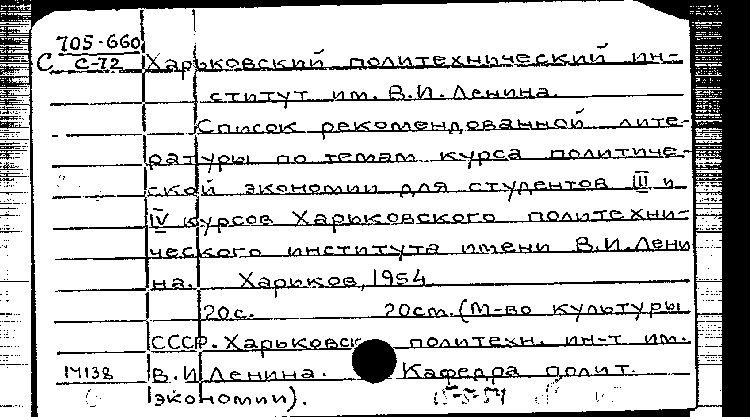 705-660
С С-72 Харьковский политехнический ин-
ститут им. В.И. Ленина.
Список рекомендованной лите-
ратуры по темам курса политиче-
ской экономии для студентов III и
IV курсов Харьковского политехни-
ческого института имени В.И. Лени
на. Харьков, 1954
20с. 20см. (М-во культуры
СССР. Харьковск политехн. ин-т им.
М138 В.И Ленина. Кафедра полит.
экономии). 15-5-54